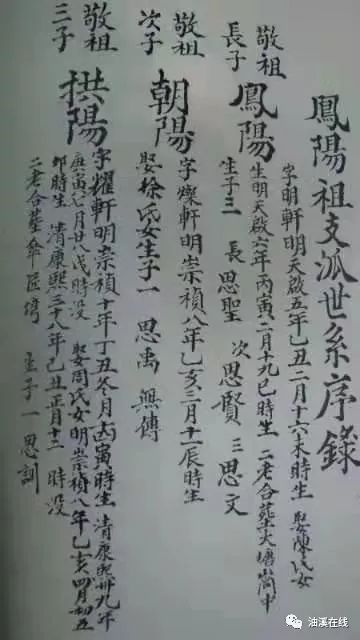 鳳陽祖支派世系序錄
敬祖
長子
鳳陽
字明軒明天啟五年乙丑二月十六未時生 娶陳氏女
生明天啟六年丙寅二月十九巳時生 二老合葬大塘崗中
生子三 長 思聖 次 思賢 三 思文
敬祖
次子
朝陽
字燦軒明崇禎八年乙亥三月十一辰時生
娶徐氏女生子一 思禹 無傳
敬祖
三子
拱陽
字耀軒明崇禎十年丁丑冬月 寅時生 清康熙卅九年
庚寅七月廿八戌時没 娶周氏女明崇禎八年乙亥四月初五
卯時生 清康熙三十八年己丑正月十二 時没
二老合葬傘匠塆 生子一思訓
油溪在线